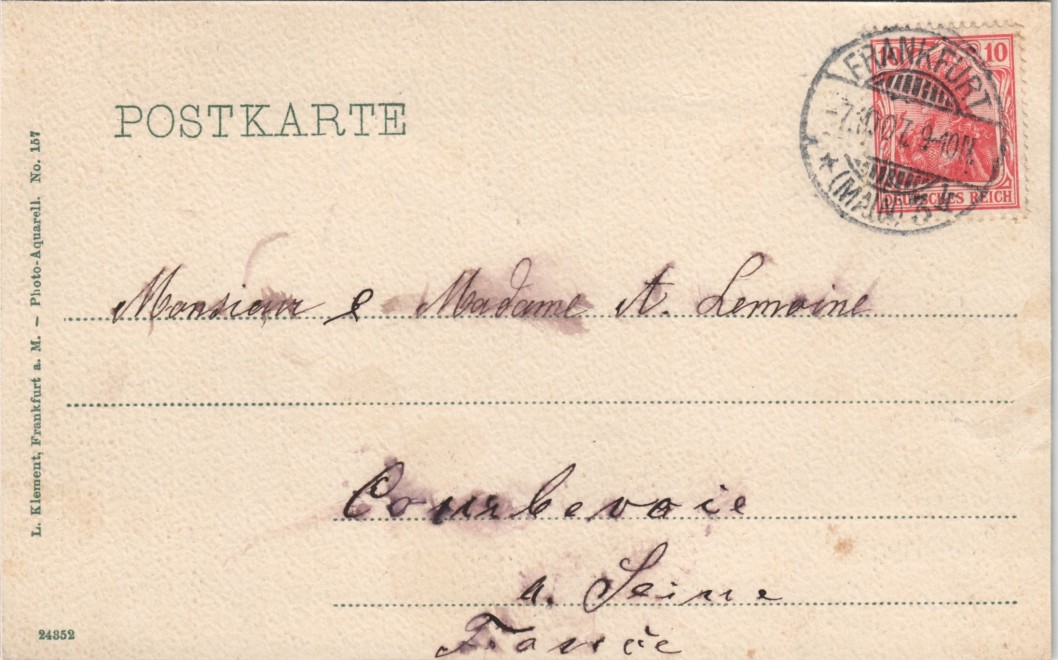 POSTKARTE
10 10
DEUTSCHES REICH
FRANKFURT
9-10N.
(MAIN)
Monsieur e Madame A. Lemoine
Courbevoie
a. Seine
France
L. Klement, Frankfurt a. M. — Photo-Aquarell. No. 157
24352